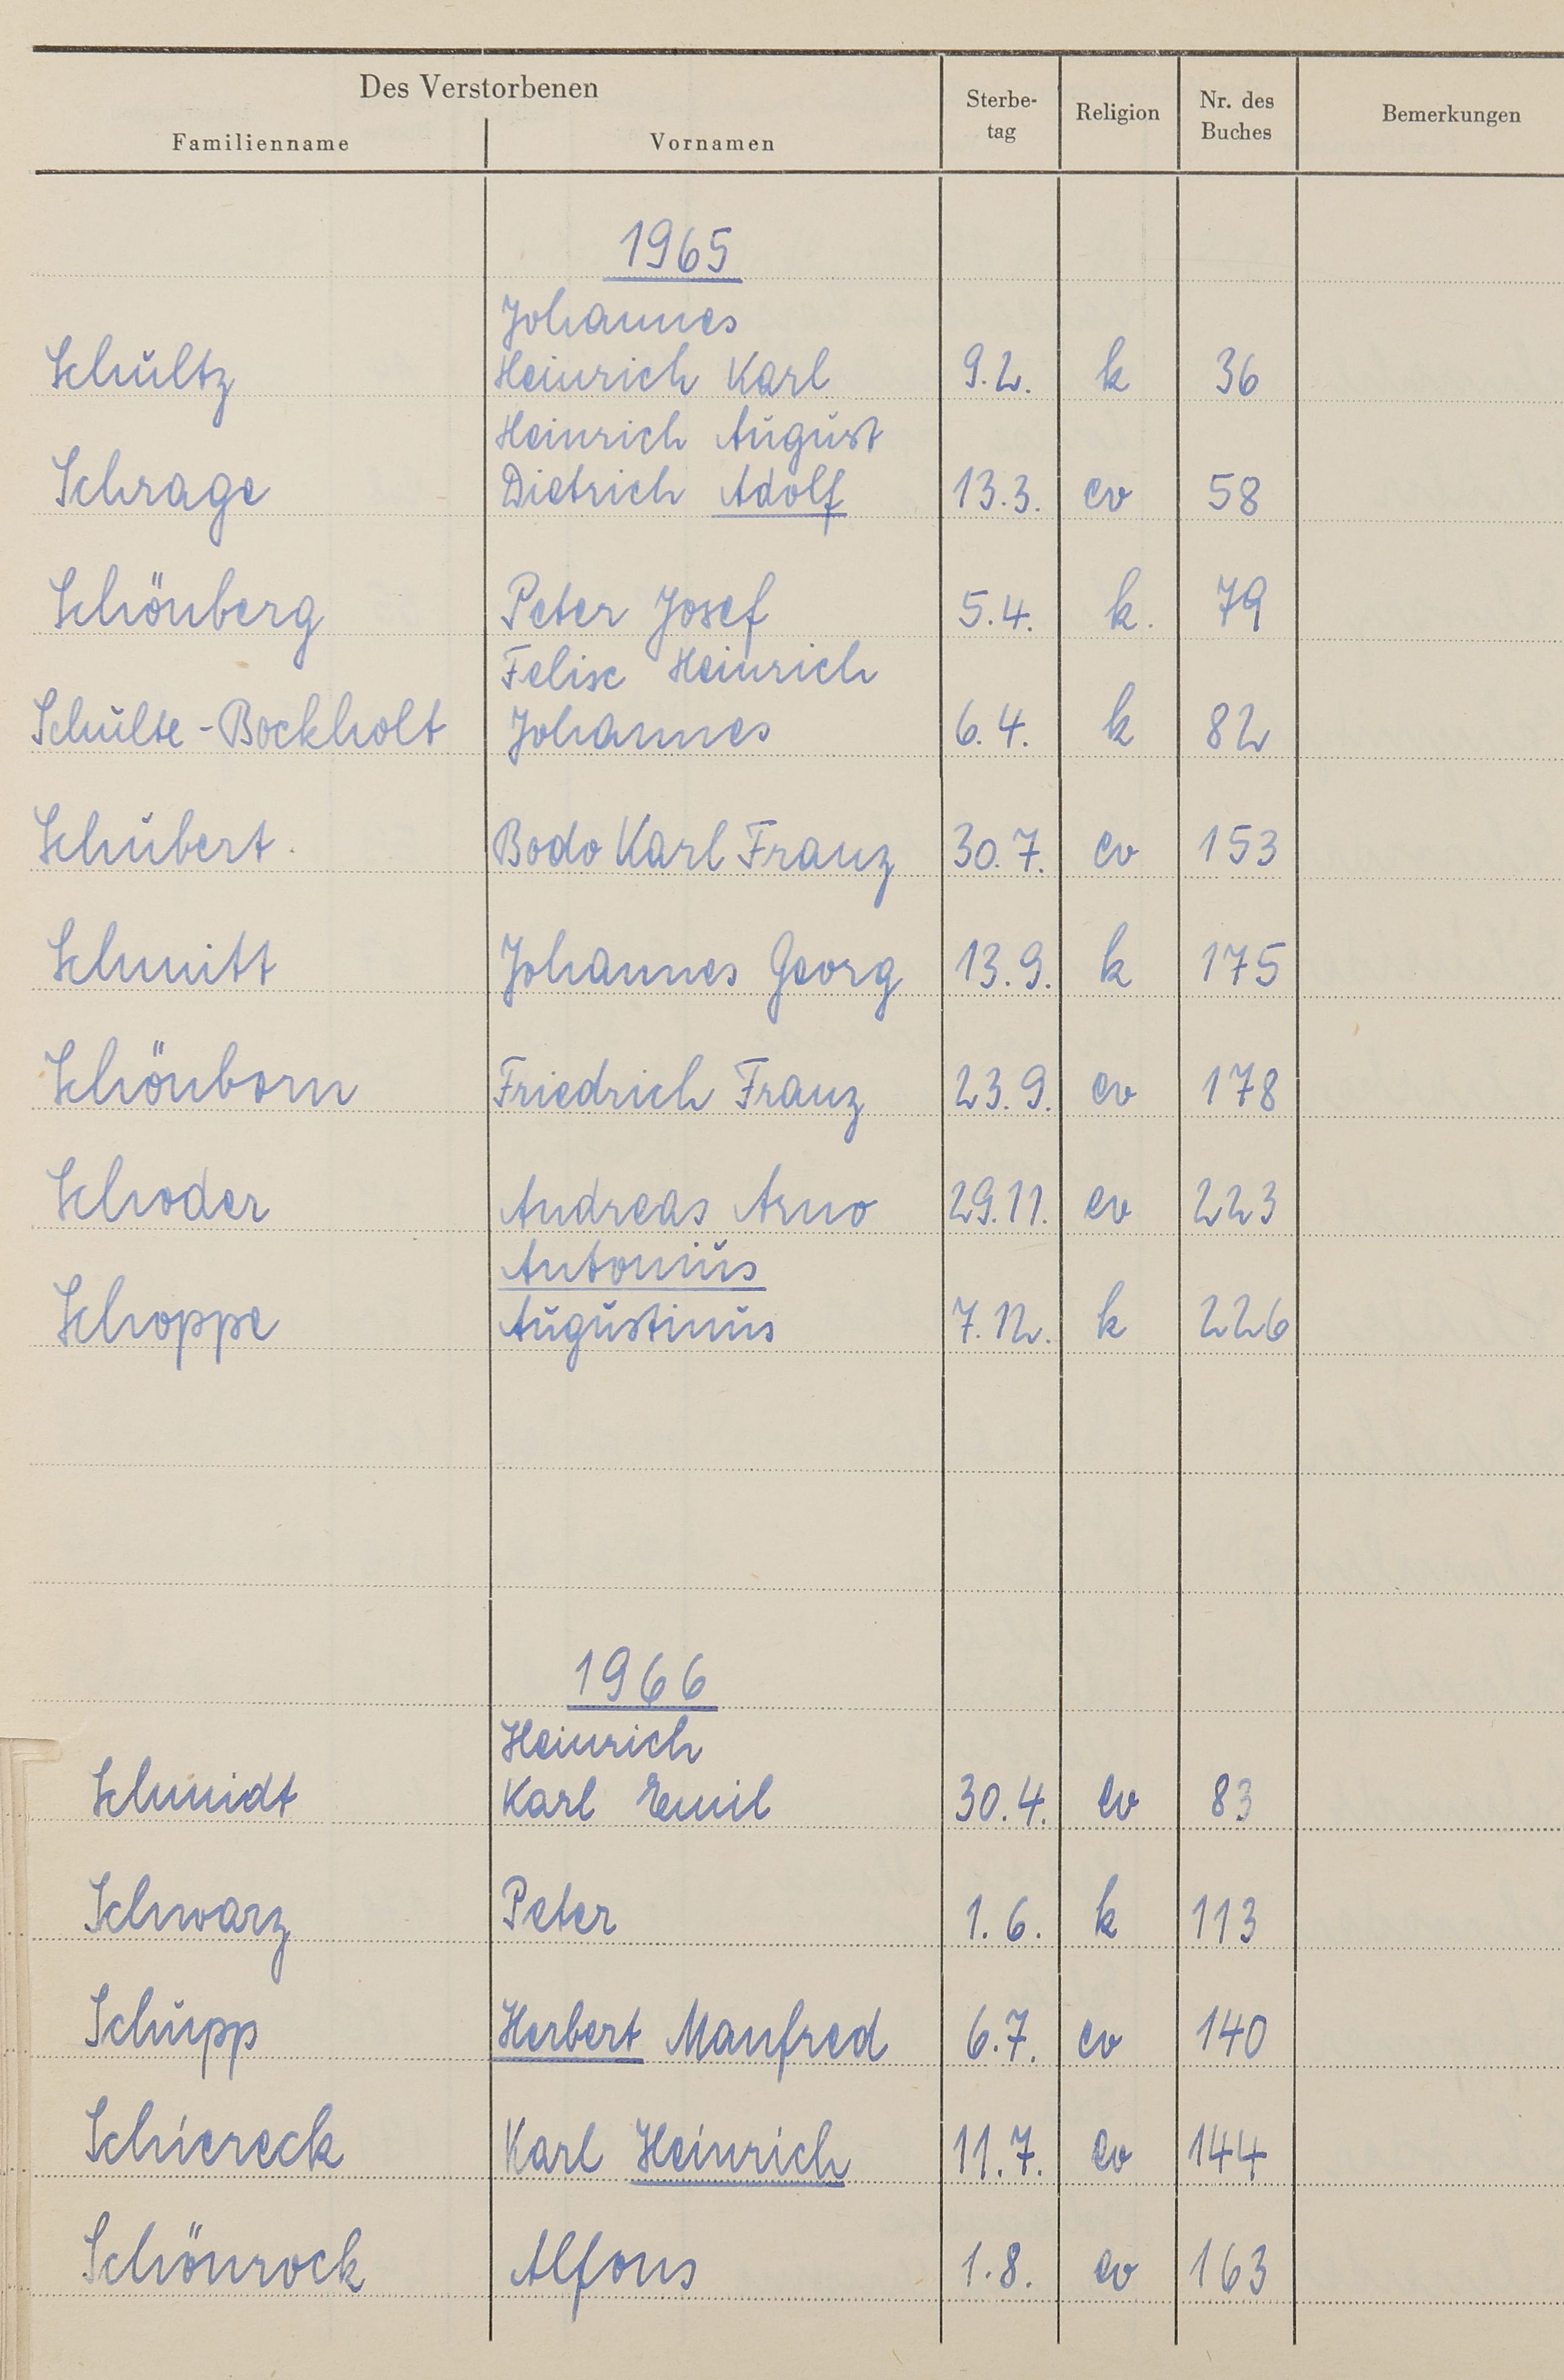 Des Verstorbenen
Familienname Vornamen Sterbe-tag Religion Nr. des Buches Bemerkungen
1965
Johannes
Schultz Heinrich Karl 9.2. k 36
Heinrich August
Schrage Dietrich Adolf 13.3. ev 58
Schönberg Peter Josef 5.4. k. 79
Felix Heinrich
Schulte-Bockholt Johannes 6.4. k 82
Schubert Bodo Karl Franz 30.7. ev 153
Schmitt Johannes Georg 13.9. k 175
Schönborn Friedrich Franz 23.9. ev 178
Schoder Andreas Arno 29.11. ev 223
Antonius
Schoppe Augustinus 7.12. k 226
1966
Heinrich
Schmidt Karl Emil 30.4. ev 83
Schwarz Peter 1.6. k 113
Schupp Herbert Manfred 6.7. ev 140
Schiereck Karl Heinrich 11.7. ev 144
Schönrock Alfons 1.8. ev 163